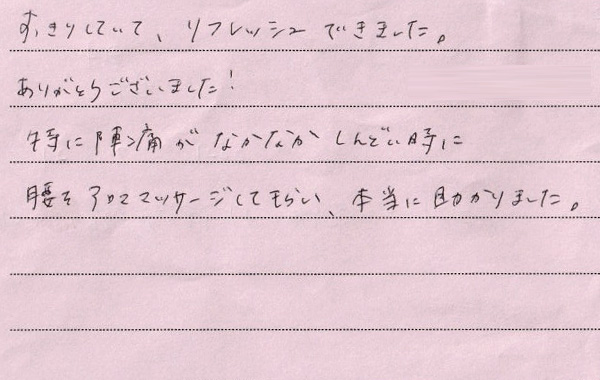 すっきりしていて、リフレッシュできました。
ありがとうございました!
特に陣痛がなかなかしんどい時に
腰をアロママッサージしてもらい、本当に助かりました。